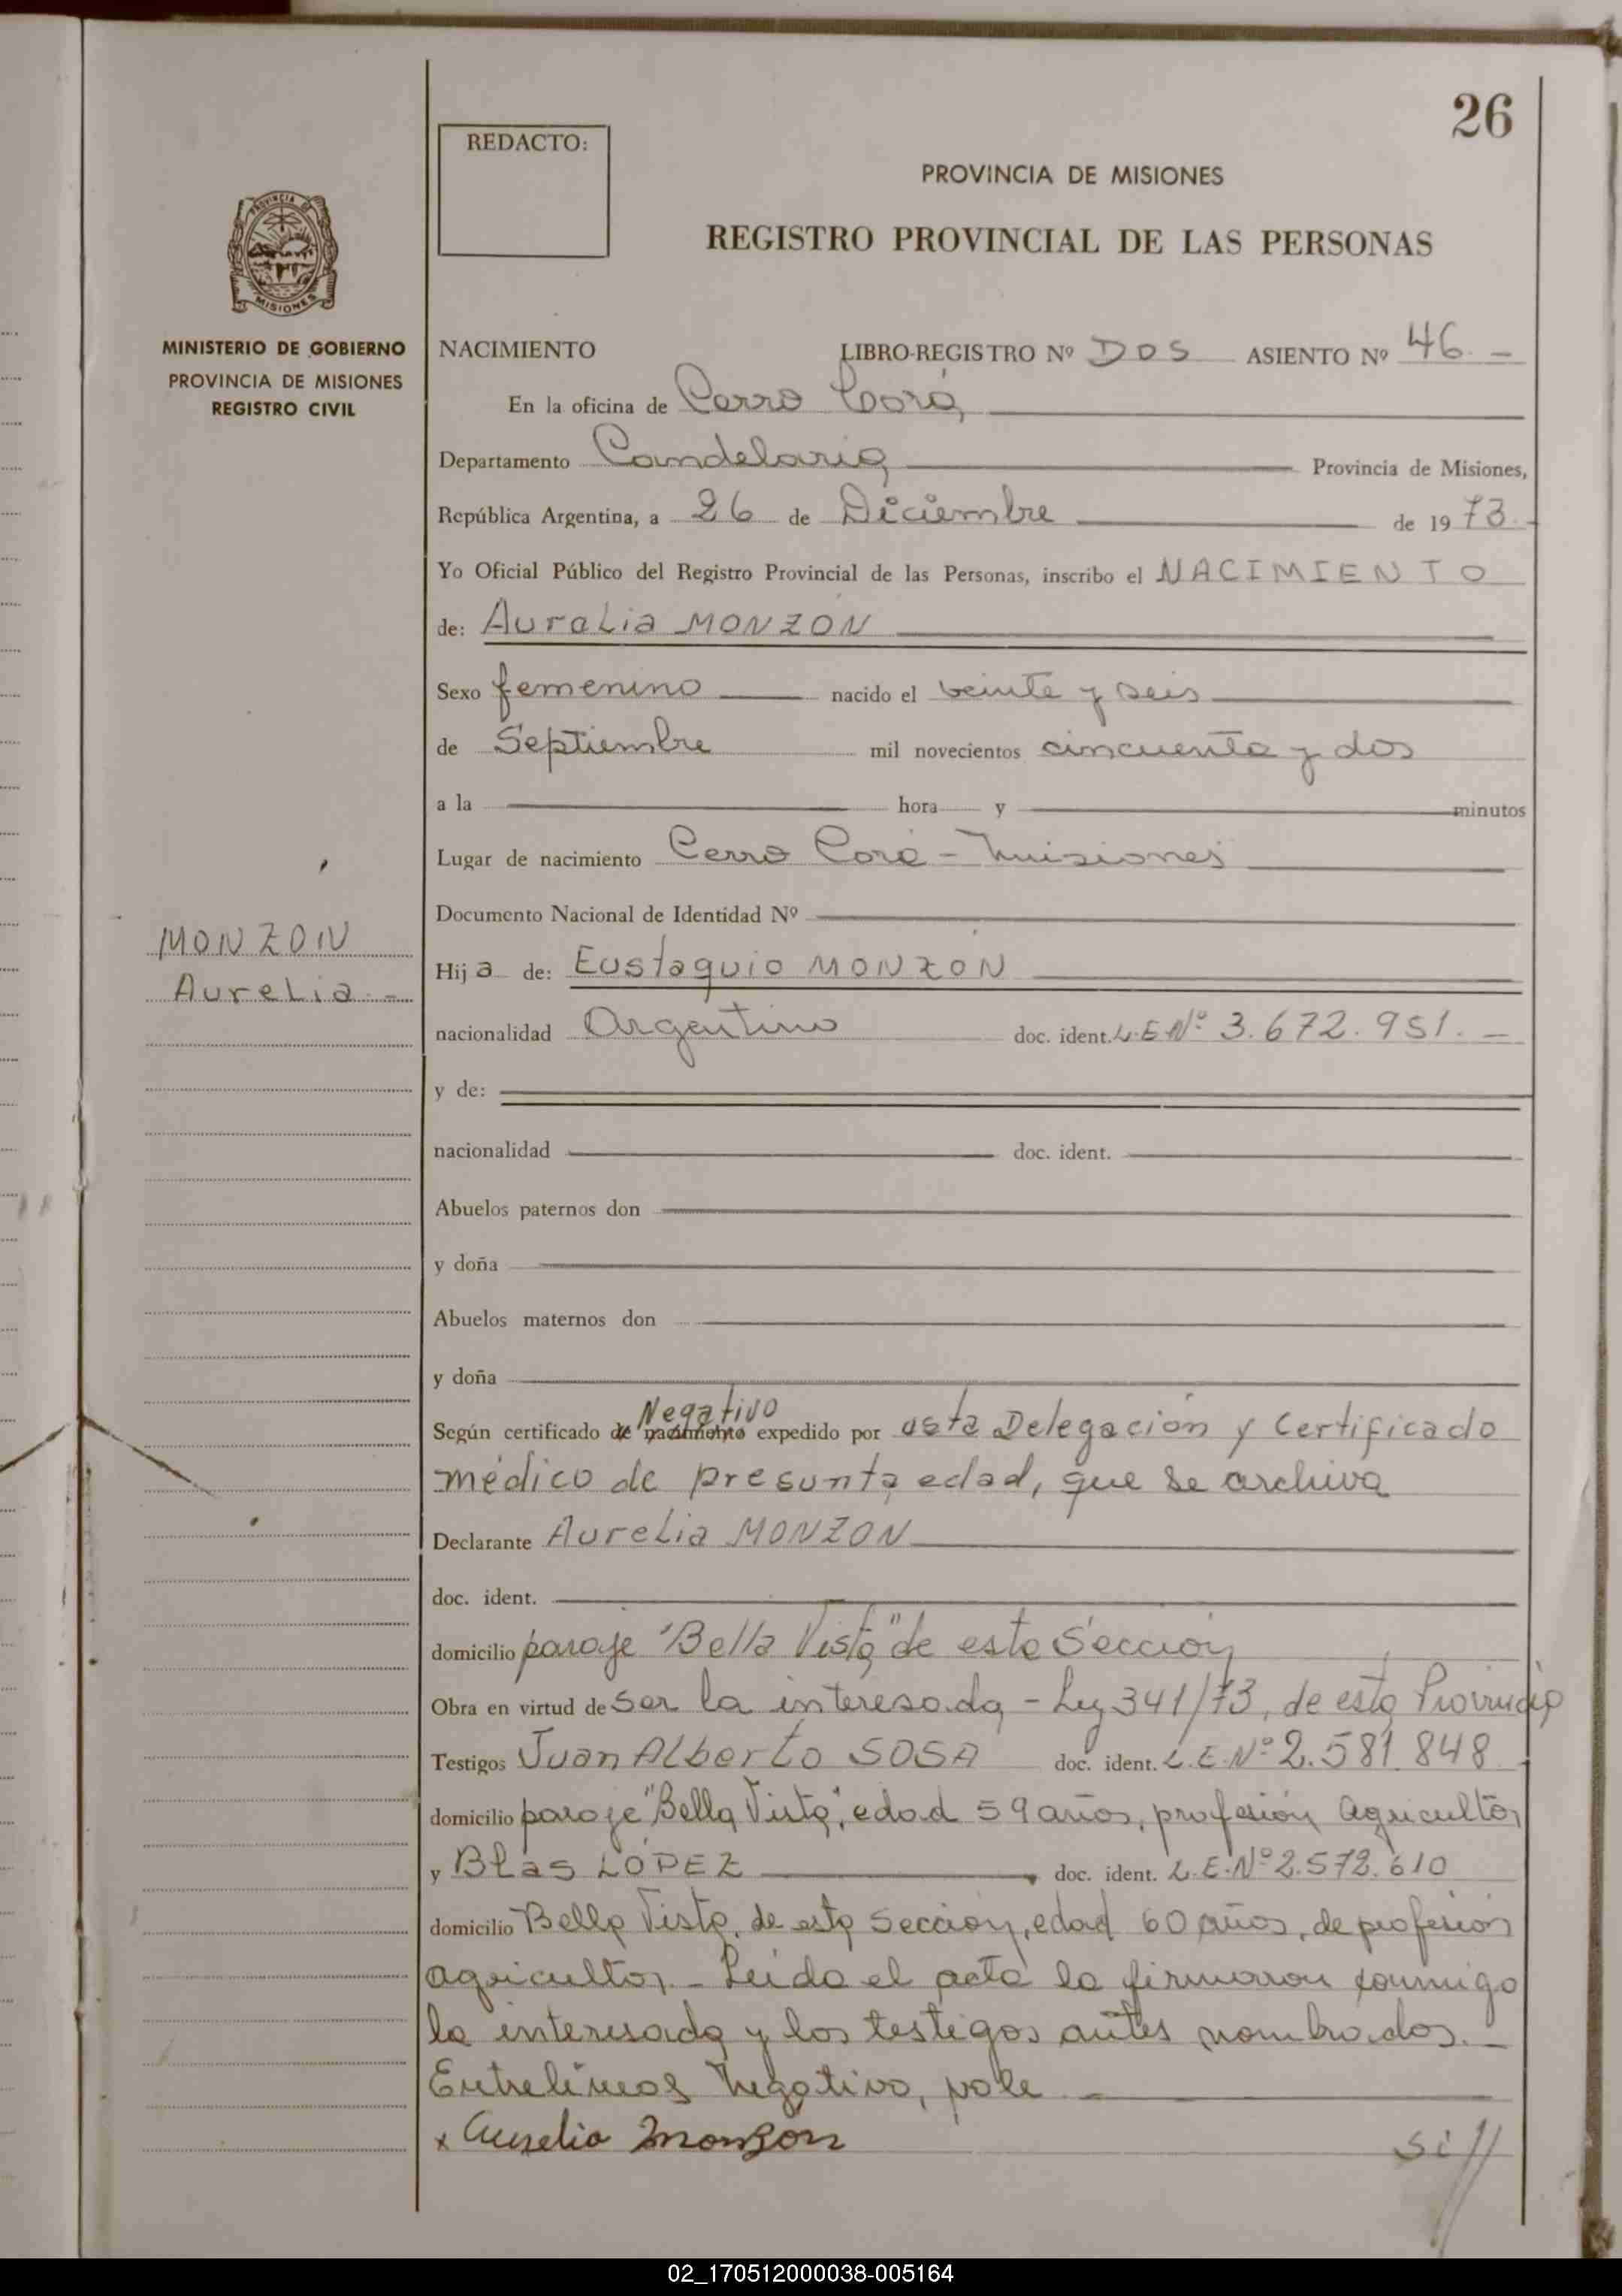 26
REDACTO:
PROVINCIA DE MISIONES
REGISTRO PROVINCIAL DE LAS PERSONAS
MISIONES
MINISTERIO DE GOBIERNO
PROVINCIA DE MISIONES
REGISTRO CIVIL
NACIMIENTO LIBRO-REGISTRO Nº DOS ASIENTO Nº 46.-
En la oficina de Cerro Corá,
Departamento Candelaria Provincia de Misiones,
República Argentina, a 26 de Diciembre de 1973.-
Yo Oficial Público del Registro Provincial de las Personas, inscribo el NACIMIENTO
de: Auralia MONZON
Sexo femenino nacido el veinte y seis
de Septiembre mil novecientos cincuenta y dos
a la hora y minutos
Lugar de nacimiento Cerro Corá - Misiones
Documento Nacional de Identidad Nº
MONZON
Aurelia.-
Hija de: Eustaquio MONZON
nacionalidad Argentino doc. ident. L.E.Nº 3.672.951.-
y de:
nacionalidad doc. ident.
Abuelos paternos don
y doña
Abuelos maternos don
y doña
Negativo
Según certificado de nacimiento expedido por esta Delegación y Certificado
médico de presunta edad, que se archiva
Declarante Aurelia MONZON
doc. ident.
domicilio paraje "Bella Vista" de esta Sección
Obra en virtud de ser la interesada - Ley 341/73, de esta Provincia
Testigos Juan Alberto SOSA doc. ident. L.E.Nº 2.581.848
domicilio paraje "Bella Vista", edad 59 años, profesión agricultor
y Blas LÓPEZ, doc. ident. L.E.Nº 2.572.610
domicilio Bella Vista, de esta sección, edad 60 años, de profesión
agricultor.- Leída el acta la firmaron conmigo
la interesada y los testigos antes nombrados.-
Entrelíneas Negativo, vale.-
x Aurelia Monzon si//
02_170512000038-005164